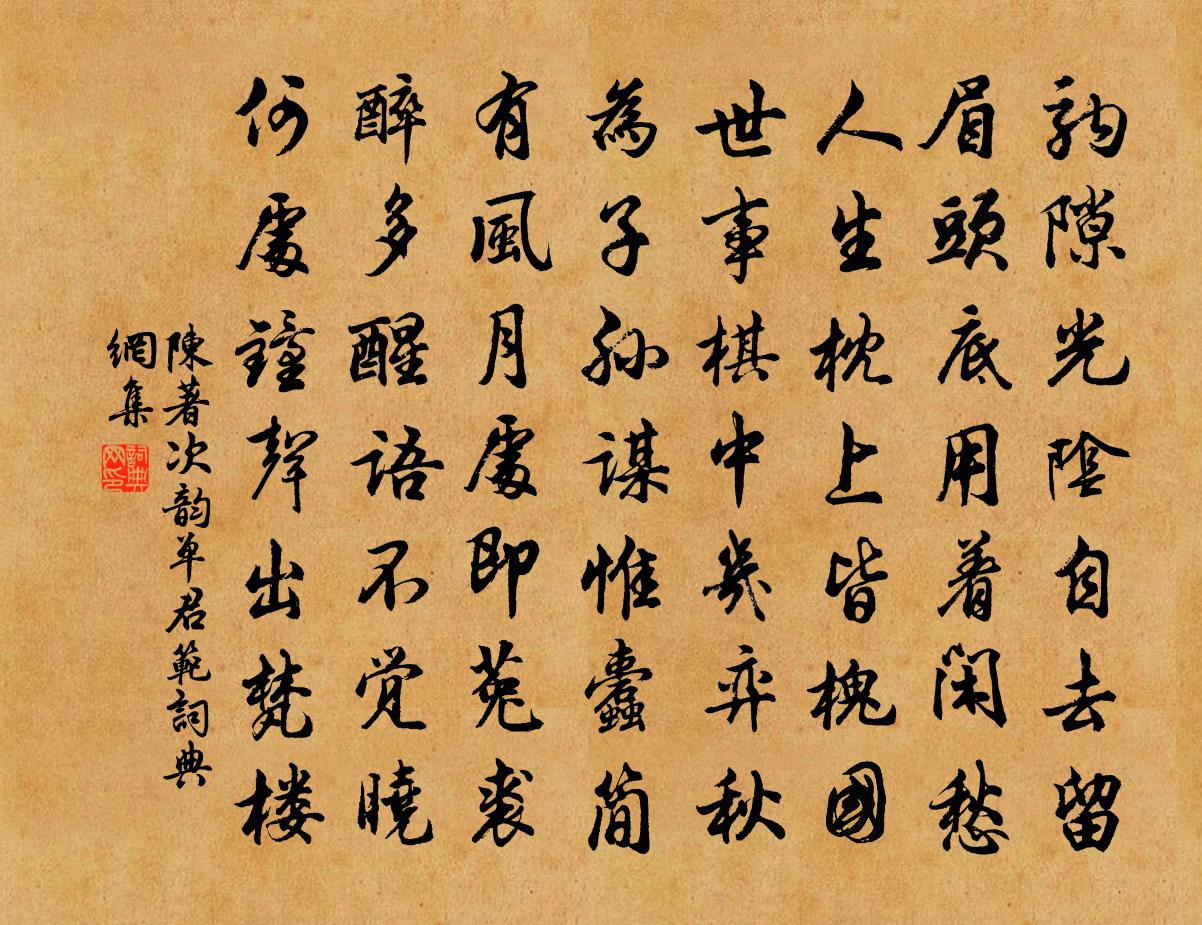 駒隙光陰自去留
眉頭底用着閑愁
人生枕上皆槐國
世事棋中幾弈秋
為子孫謀惟蠹簡
有風月處即菟裘
醉多醒語不覺曉
何處鐘聲出梵楼
陳著次韵单君範詞典
網集
詞典网印